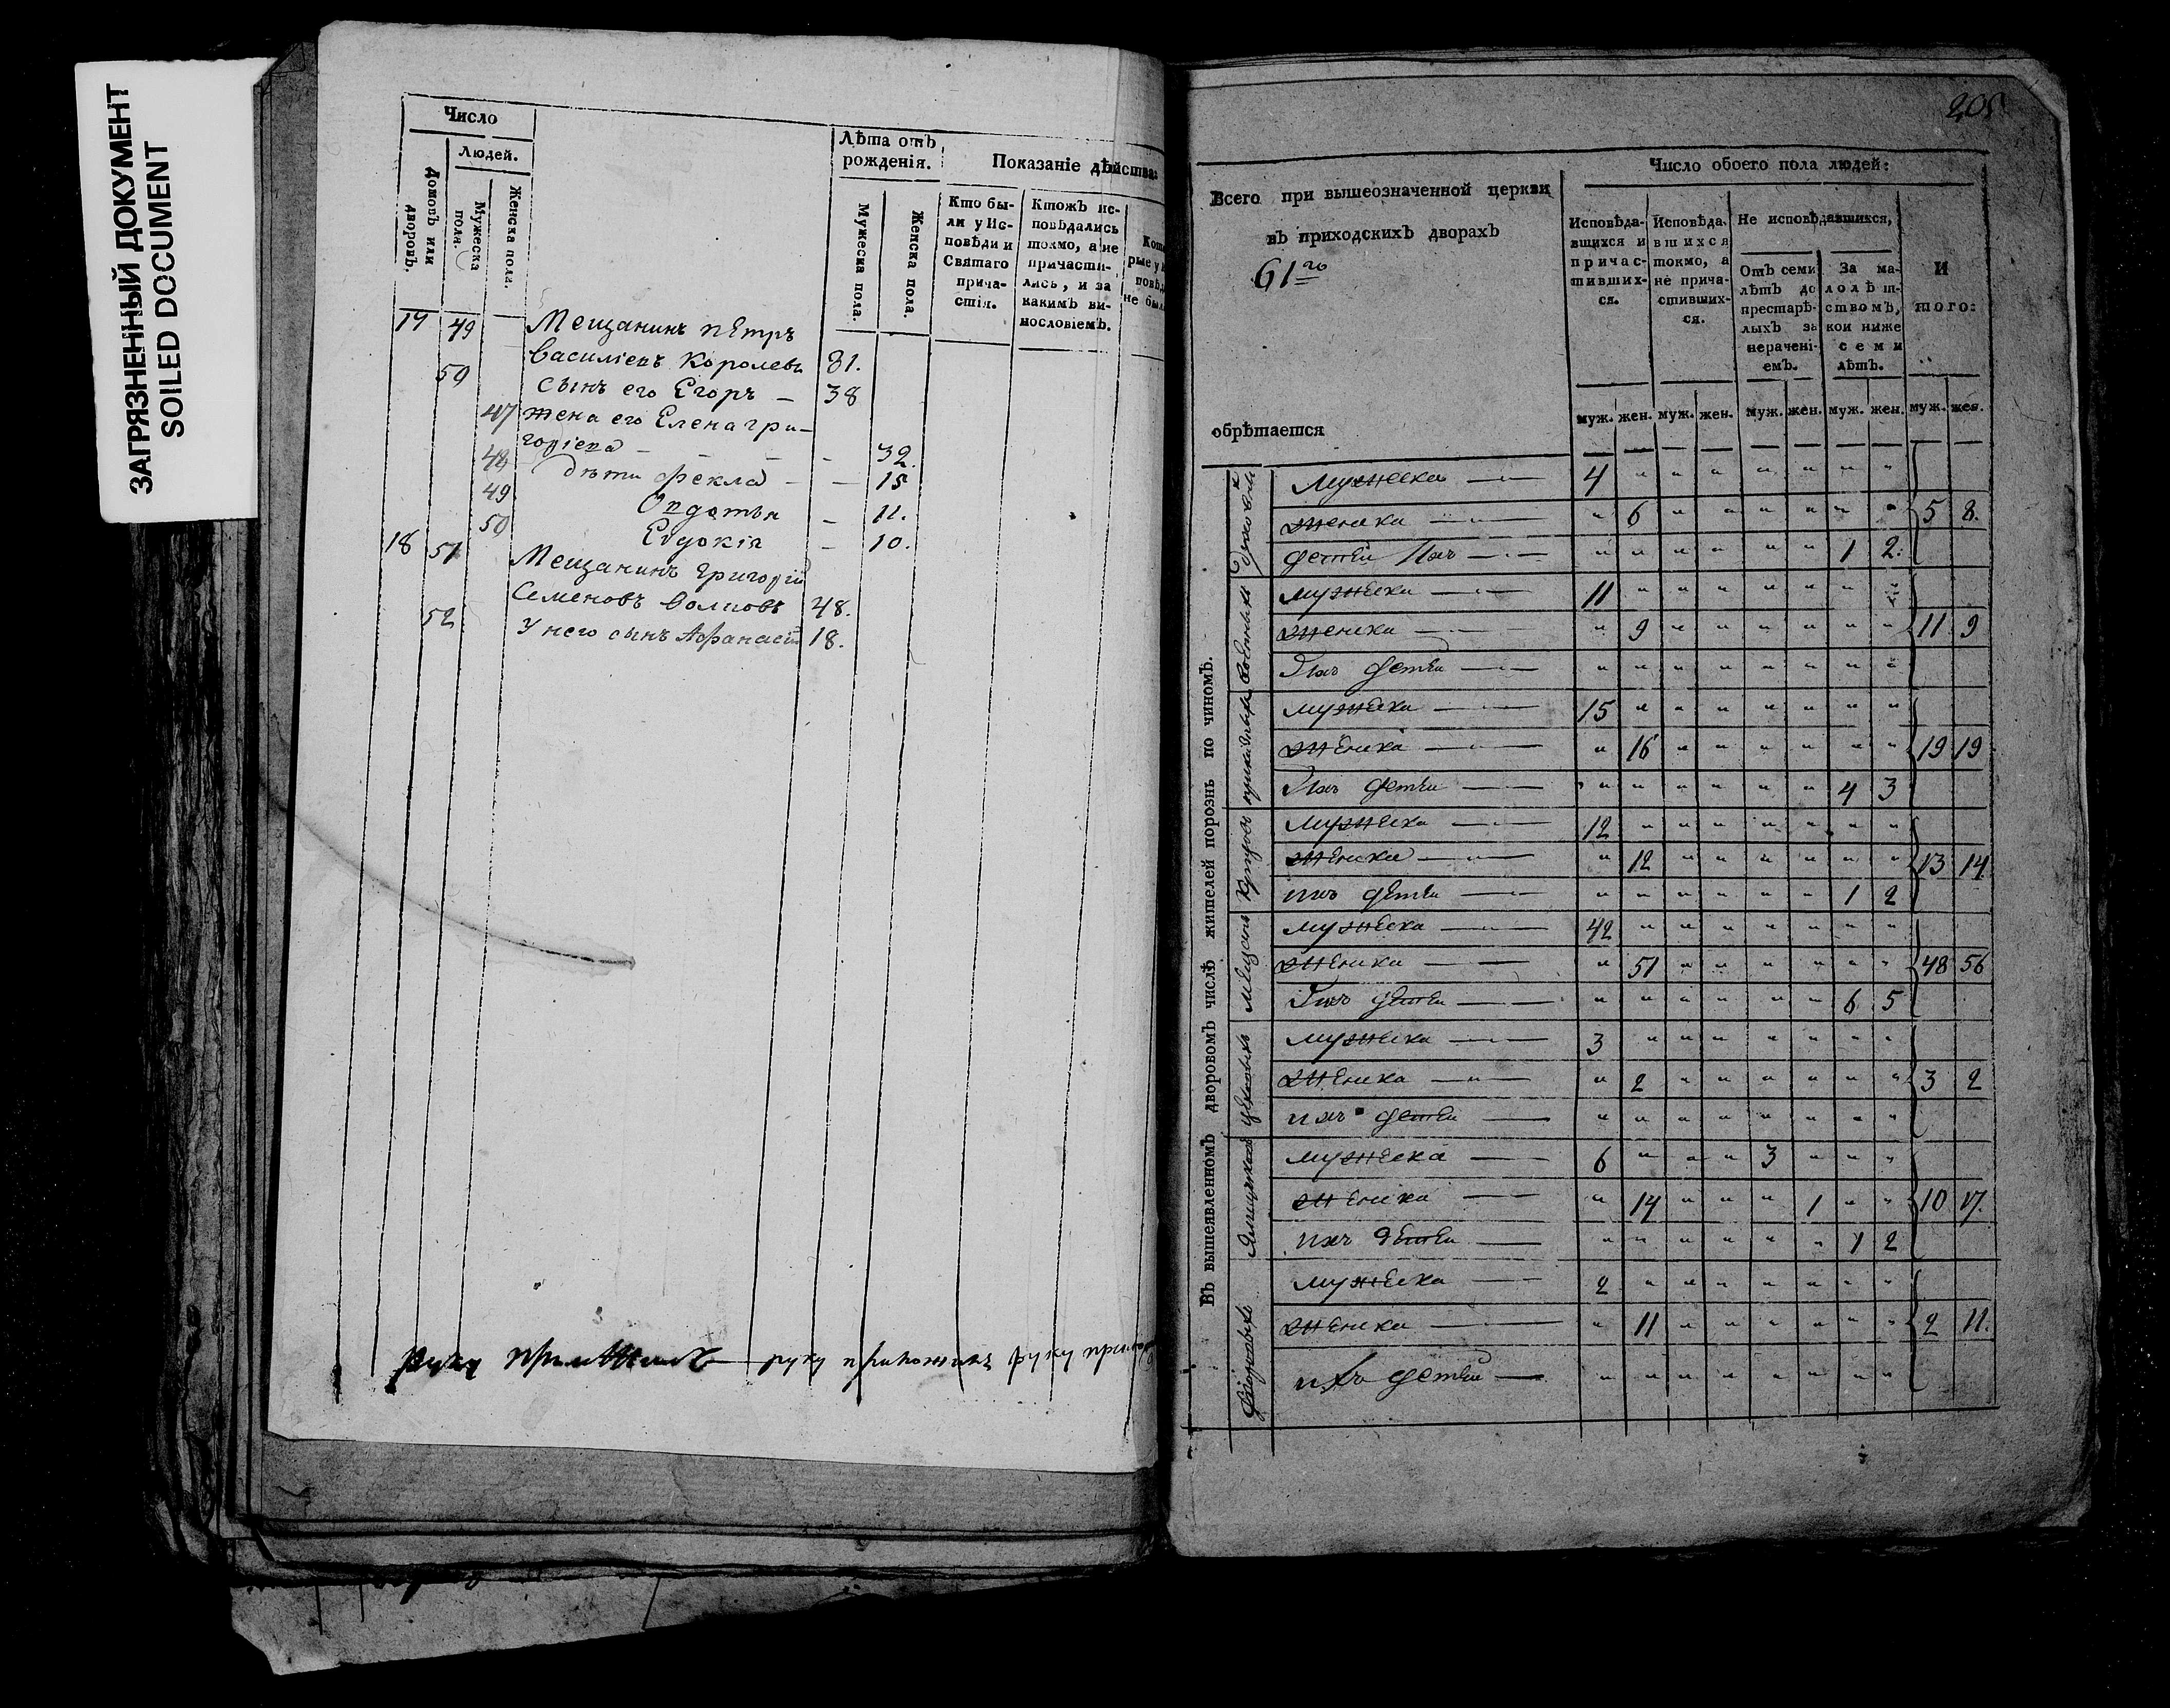 ЗАГРЯЗНЕННЫЙ ДОКУМЕНТ
SOILED DOCUMENT
Число
Людей.
Домовъ или дворовъ.
Мужеска пола.
Женска пола.
Лѣта отъ рожденія.
Мужеска пола.
Женска пола.
Показаніе дѣйства:
Кто были у Исповѣди и Святаго причастія.
Ктожъ исповѣдались токмо, а не причастились, и за какимъ винословіемъ.
19 49 Мещанинъ пЕтръ
Василіевъ Королевъ 81.
50 сынъ его Егоръ — 38
47 жена его Елена гри-
горіева — — — 32.
48 дѣти Фекла — — 15
49 Овдотья — 11.
50 Евдокія — 10.
18 51 Мещанинъ григорій
Семеновъ Волковъ 48.
52 У него сынъ Афанасій 18.
руку приложилъ — руку приложилъ руку
205
Всего при вышеозначенной церкви
въ приходскихъ дворахъ
61го
обрѣтается
Число обоего пола людей:
Исповѣдавшихся и причастившихся.
Исповѣдавшихся токмо, а не причастившихся.
Не исповѣдавшихся,
Отъ семи лѣтъ до престарѣлыхъ за нераченіемъ.
За малолѣтствомъ, кои ниже семи лѣтъ.
И того:
муж. жен. муж. жен. муж. жен. муж. жен. муж. жен.
Въ вышеявленномъ дворовомъ числѣ жителей порознь по чиномъ.
Духовных
мужеска — 4 " " " " " " "
женска — " 6 " " " " " " 5 8.
детей Ихъ — " " " " " " 1 2.
Военныхъ
мужеска — 11 " " " " " " "
женска — " 9 " " " " " " 11 9
Ихъ детей — " " " " " " " "
приказныхъ
мужеска — 15 " " " " " " "
женска — " 16 " " " " " " 19 19
Ихъ детей — " " " " " " 4 3
Купцовъ
мужеска — 12 " " " " " " "
женска — " 12 " " " " " " 13 14
ихъ детей — " " " " " " 1 2
мещанъ
мужеска — 42 " " " " " " "
женска — " 51 " " " " " " 48 56
Ихъ детей — " " " " " " 6 5
цеховыхъ
мужеска — 3 " " " " " " "
женска — " 2 " " " " " " 3 2
ихъ детей — " " " " " " " "
Ямщиковъ
мужеска — 6 " " " 3 " " "
женска — " 14 " " " 1 " " 10 17.
ихъ детей — " " " " " " 1 2
Дворовыхъ
мужеска — 2 " " " " " " "
женска — " 11 " " " " " " 2 11.
ихъ детей — " " " " " " " "